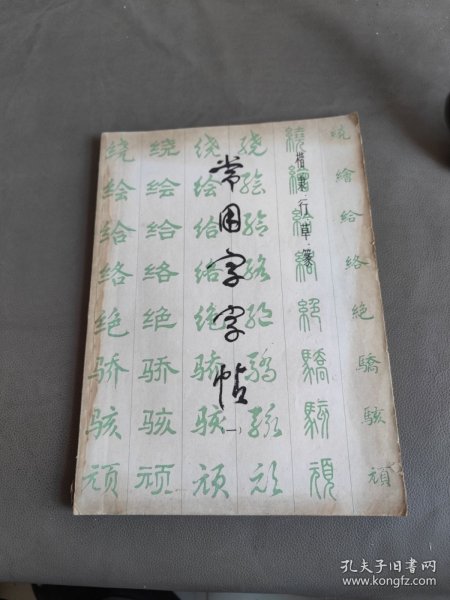 常用字字帖
(一)
楷·隶·行·草·篆
绕绘给络绝骄骇顽
绕绘给络绝骄骇顽
绕绘给络绝骄骇顽
绕绘给络绝骄骇顽
繞繪給絡絕驕駭頑
繞繪給絡絶驕駭頑
孔夫子旧书网
www.kongfz.com